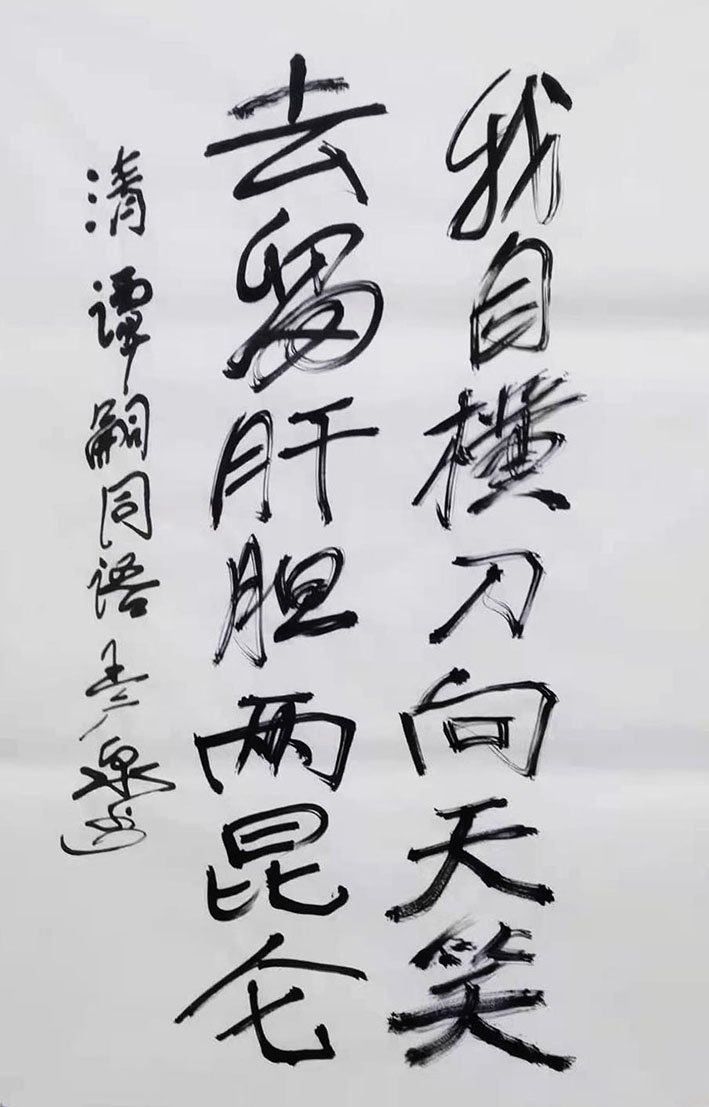 我自横刀向天笑
去留肝胆两昆仑
清 谭嗣同语